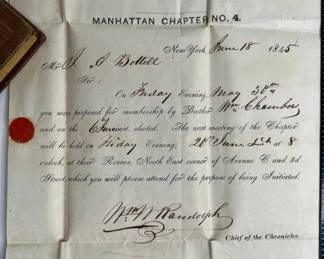 MANHATTAN CHAPTER NO. 4.
New-York, June 18 1845
Mr J. A. Bottell
Sir:
On Friday Evening, May 30th
you were proposed for membership by Brother Wm Chamber
and on the elected. The next meeting of the Chapter
will be held on Friday Evening, 20 June Inst. at 8
o'clock, at their Rooms, North East corner of Avenue C and 3d
Street, which you will please attend for the purpose of being Initiated.
Wm W Randolph
Chief of the Chronicles.